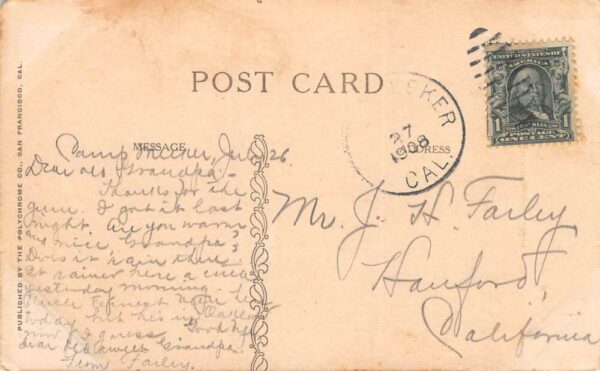 POST CARD
MESSAGE
ADDRESS
PUBLISHED BY THE POLYCHROME CO., SAN FRANCISCO, CAL.
EKER
27
1908
CAL.
UNITED STATES OF
AMERICA
FRANKLIN
1 1
POSTAGE
ONE CENT
Camp Meeker, 26
Dear old Grandpa-
Thanks for the
gum. I got it last
night. Are you warm
nice, Grandpa?
Does it rain there.
It rained here a
yesterday morning.
Uncle Earnest
today but his in Oakland
now I guess. Good bye
dear old sweet Grandpa.
From Farley.
Mr. J. H. Farley
Hanford,
California